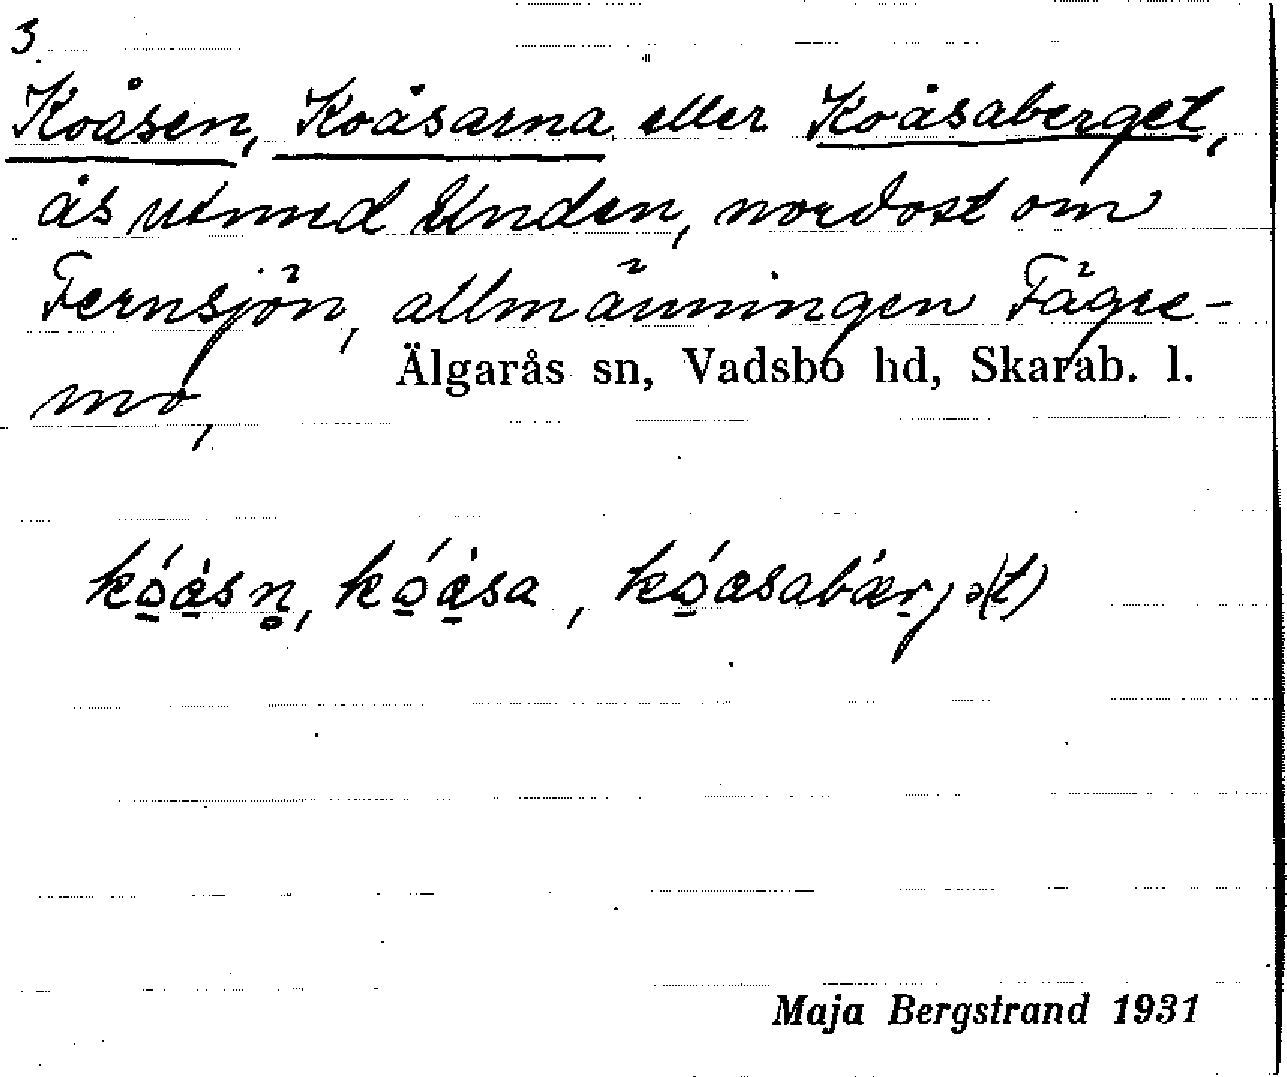 3
Koåsen, Koåsarna eller Koåsaberget,
ås utmed Unden, nordost om
Fernsjön, allmänningen Fägre-
mo,
Älgarås sn, Vadsbo hd, Skarab. l.
Maja Bergstrand 1931